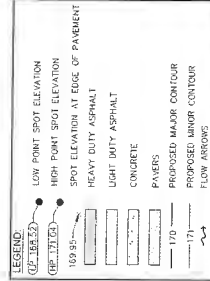 LEGEND:
LP 168.52 LOW POINT SPOT ELEVATION
HP 171.04 HIGH POINT SPOT ELEVATION
169.95 SPOT ELEVATION AT EDGE OF PAVEMENT
HEAVY DUTY ASPHALT
LIGHT DUTY ASPHALT
CONCRETE
PAVERS
170 PROPOSED MAJOR CONTOUR
171 PROPOSED MINOR CONTOUR
FLOW ARROWS